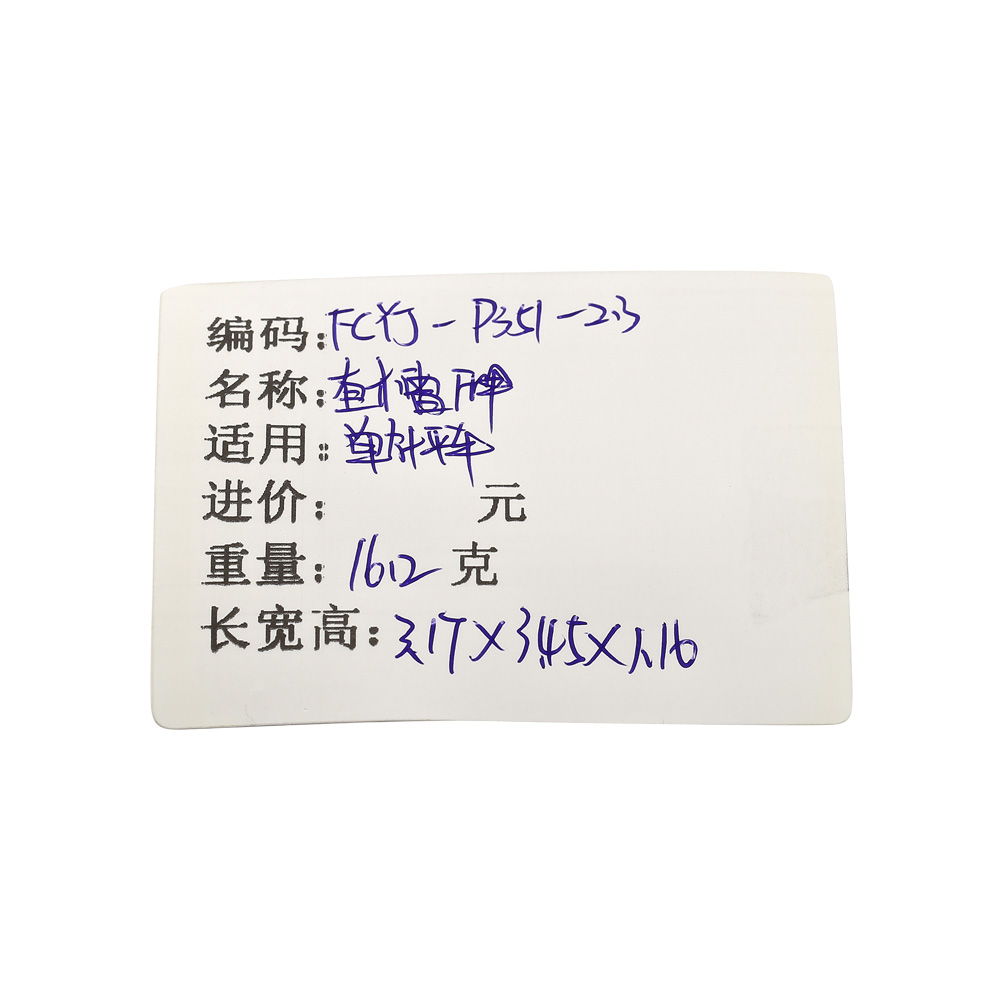 编码:FCYJ-P351-2.3
名称:
适用:单针平车
进价: 元
重量:16.2克
长宽高:3.17×3.45×1.16